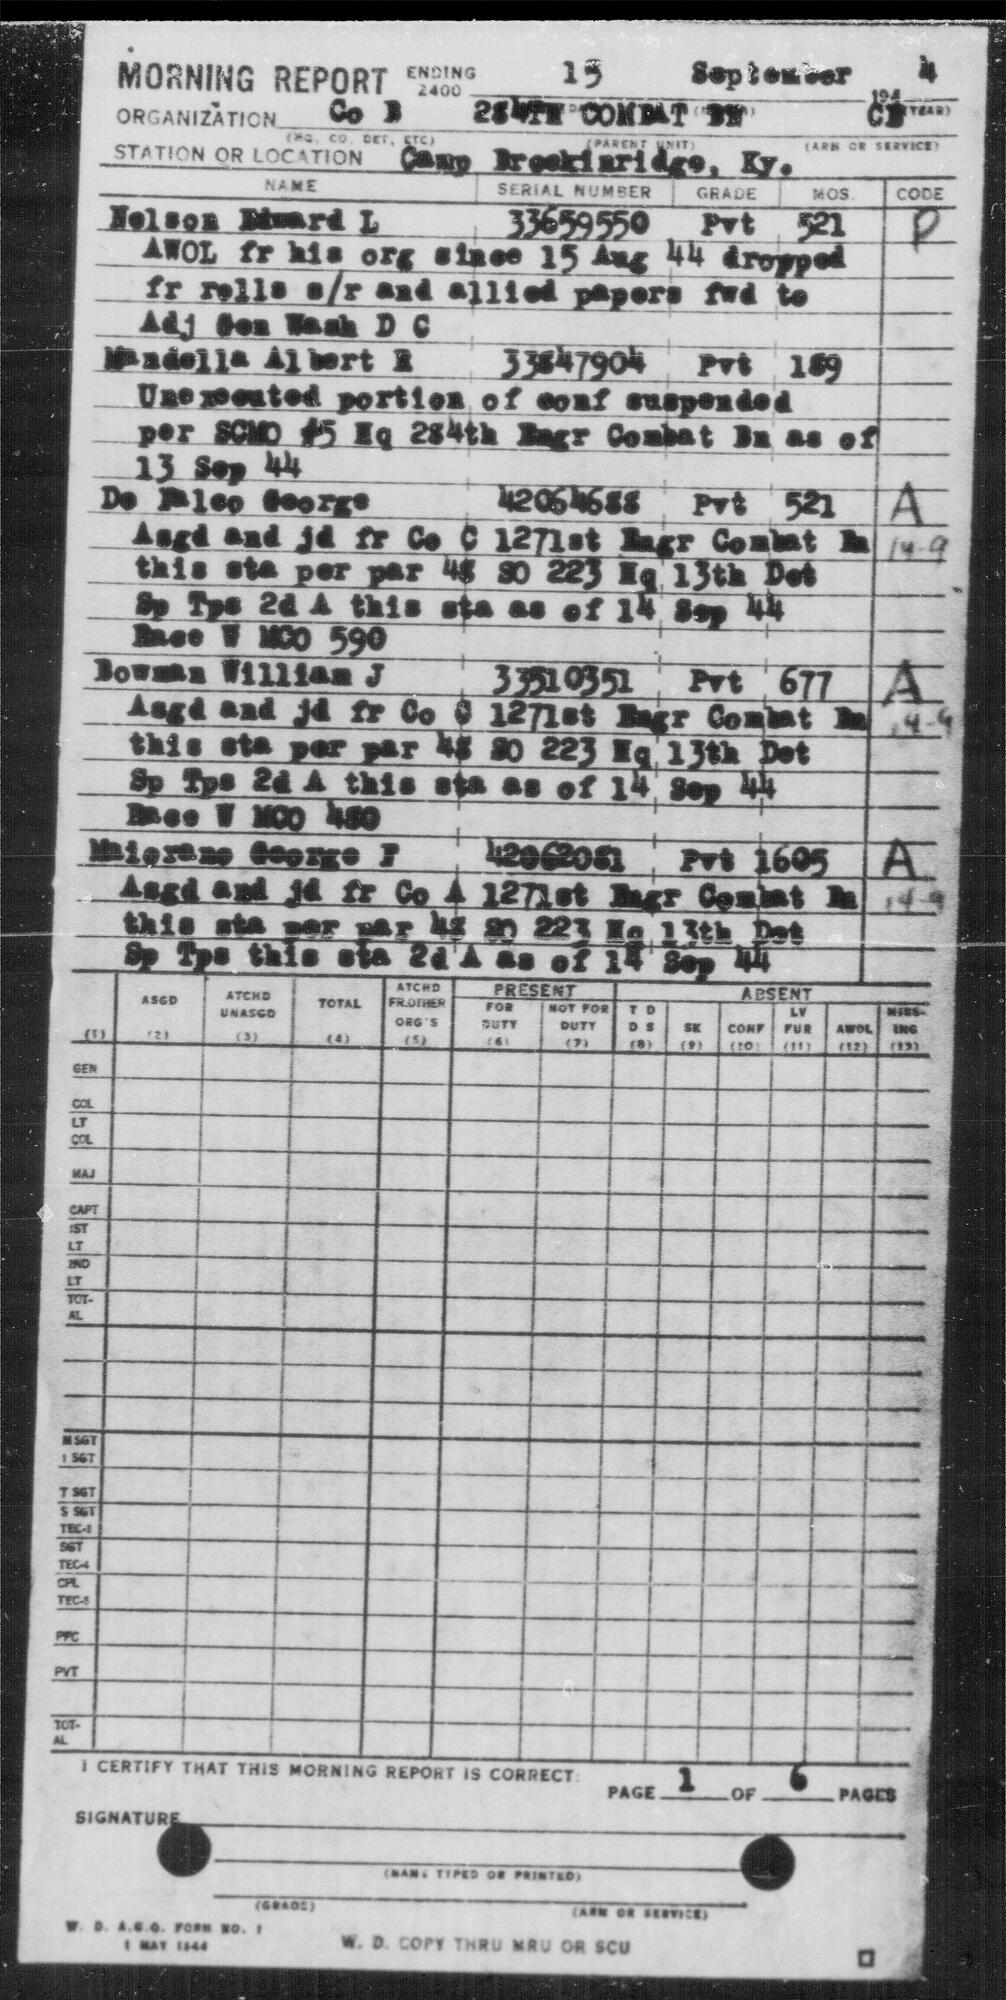 MORNING REPORT ENDING 2400 15 September 194 4
ORGANIZATION Co B 284TH COMBAT BN CE (YEAR)
(HQ. CO. DET, ETC) (PARENT UNIT) (ARM OR SERVICE)
STATION OR LOCATION Camp Breckinridge, Ky.
NAME SERIAL NUMBER GRADE MOS. CODE
Nelson Edward L 33659550 Pvt 521 D
AWOL fr his org since 15 Aug 44 dropped
fr rolls s/r and allied papers fwd to
Adj Gen Wash D C
Mandella Albert R 33847904 Pvt 189
Unexecuted portion of conf suspended
per SCMO #5 Hq 284th Engr Combat Bn as of
13 Sep 44
De Falco George 42064688 Pvt 521 A
Asgd and jd fr Co C 1271st Engr Combat Bn 14-9
this sta per par 48 SO 223 Hq 13th Det
Sp Tps 2d A this sta as of 14 Sep 44
Race W MCO 590
Bowman William J 33510351 Pvt 677 A
Asgd and jd fr Co C 1271st Engr Combat Bn 14-9
this sta per par 48 SO 223 Hq 13th Det
Sp Tps 2d A this sta as of 14 Sep 44
Race W MCO 480
Maiorano George F 42062081 Pvt 1605 A
Asgd and jd fr Co A 1271st Engr Combat Bn 14-9
this sta per par 48 SO 223 Hq 13th Det
Sp Tps this sta 2d A as of 14 Sep 44
ASGD ATCHD UNASGD TOTAL ATCHD FR.OTHER ORG'S PRESENT FOR DUTY NOT FOR DUTY ABSENT T D D S SK CONF LV FUR AWOL MISS-ING
(1) (2) (3) (4) (5) (6) (7) (8) (9) (10) (11) (12) (13)
GEN
COL
LT
COL
MAJ
CAPT
1ST
LT
2ND
LT
TOT-
AL
M SGT
1 SGT
T SGT
S SGT
TEC-3
SGT
TEC-4
CPL
TEC-5
PFC
PVT
TOT-
AL
I CERTIFY THAT THIS MORNING REPORT IS CORRECT:
PAGE 1 OF 6 PAGES
SIGNATURE
(NAME TYPED OR PRINTED)
(GRADE) (ARM OR SERVICE)
W. D. A.G.O. FORM NO. 1
1 MAY 1944
W. D. COPY THRU MRU OR SCU